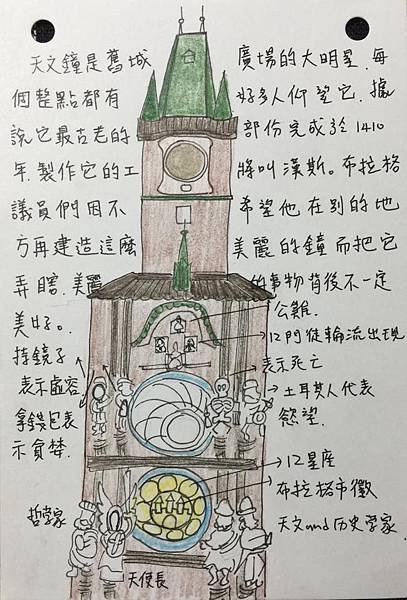 天文鐘是舊城 廣場的大明星.每
個整點都有 好多人仰望它.據
說它最古老的 部份完成於1410
年.製作它的工 將叫漢斯。布拉格
議員們因不 希望他在別的地
方再建造這麼 美麗的鐘而把它
弄瞎.美麗 的事物背後不一定
美好。
公雞.
12門從輪流出現
持鏡子
表示虛容
拿錢包表
示貪婪.
表示死亡
土耳其人代表
慾望.
12星座
布拉格市徽
哲学家
天使長
天文and历史学家